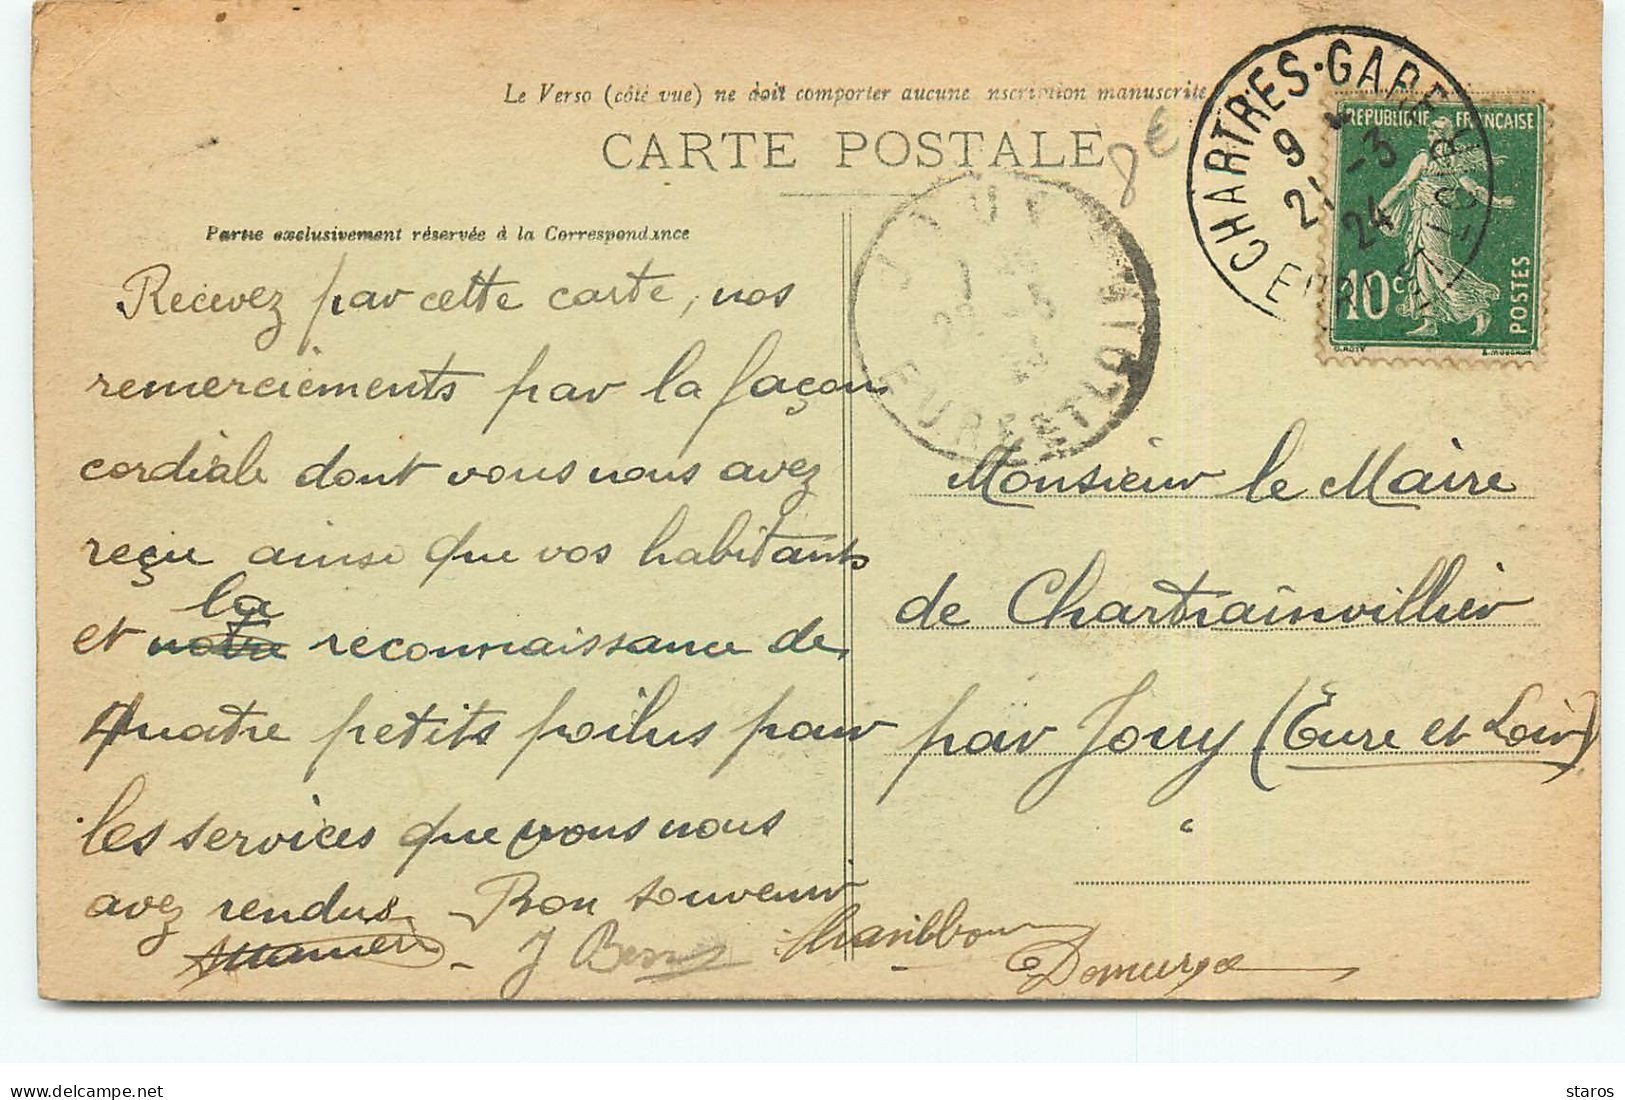 Le Verso (côté vue) ne doit comporter aucune nscription manuscrite
CARTE POSTALE
8€
Partie exclusivement réservée à la Correspondance
CHARTRES-GARE
9
21 -3
24
EURE ET LOIR
REPUBLIQUE FRANÇAISE
10c
POSTES
O. ROTY
JOUY
22
EURE ET LOIR
Recevez par cette carte, nos
remerciements par la façon
cordiale dont vous nous avez
reçu ainsi que vos habitants
et notre la reconnaissance de
quatre petits poilus pour
les services que vous nous
avez rendus - Bon souvenir
J Bess
Domurge
Monsieur le Maire
de Chartrainvillier
par Jouy (Eure et Loir)
staros